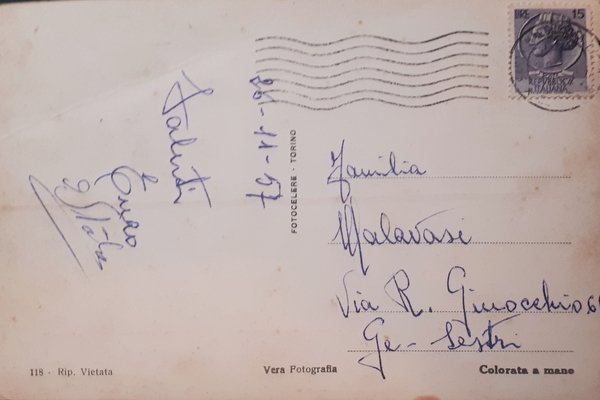 LIRE 15
REPVBBLICA
ITALIANA
26-11-57
Saluti
FOTOCELERE - TORINO
Familia
Malavasi
Via R. Ginocchio 6
Ge- Sestri
118 - Rip. Vietata
Vera Fotografia
Colorata a mano